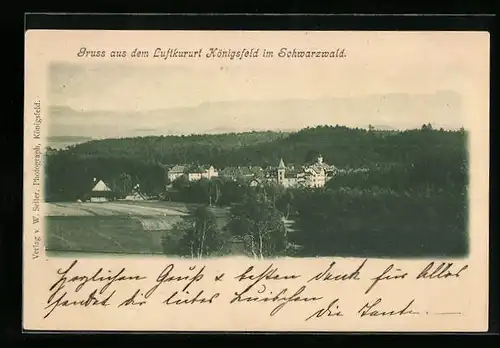 Gruss aus dem Luftkururt Königsfeld im Schwarzwald.
Verlag v. W. Seiler, Photograph, Königsfeld.
Herzlichen Gruß & besten Dank für alles
sendet dir liebes Luischen die Tante.